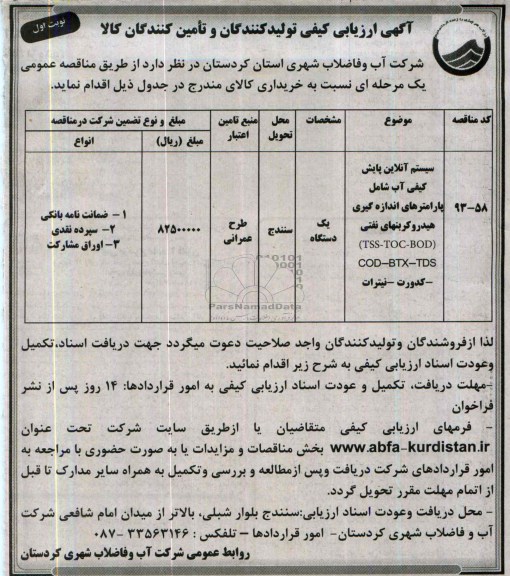 نوبت اول
آگهی ارزیابی کیفی تولیدکنندگان و تأمین کنندگان کالا
شرکت آب وفاضلاب شهری استان کردستان در نظر دارد از طریق مناقصه عمومی
یک مرحله ای نسبت به خریداری کالای مندرج در جدول ذیل اقدام نماید.
کد مناقصه موضوع مشخصات محل تحویل منبع تامین اعتبار مبلغ و نوع تضمین شرکت درمناقصه
مبلغ (ریال) انواع
۹۳-۵۸
سیستم آنلاین پایش
کیفی آب شامل
پارامترهای اندازه گیری
هیدروکربنهای نفتی
(TSS-TOC-BOD)
COD-BTX-TDS
-کدورت -نیترات
یک دستگاه
سنندج
طرح عمرانی
۸۲۵۰۰۰۰۰
۱- ضمانت نامه بانکی
۲- سپرده نقدی
۳- اوراق مشارکت
ParsNamadData
لذا ازفروشندگان وتولیدکنندگان واجد صلاحیت دعوت میگردد جهت دریافت اسناد،تکمیل
وعودت اسناد ارزیابی کیفی به شرح زیر اقدام نمائید.
-مهلت دریافت، تکمیل و عودت اسناد ارزیابی کیفی به امور قراردادها: ۱۴ روز پس از نشر
فراخوان
- فرمهای ارزیابی کیفی متقاضیان یا ازطریق سایت شرکت تحت عنوان
www.abfa-kurdistan.ir بخش مناقصات و مزایدات یا به صورت حضوری با مراجعه به
امور قراردادهای شرکت دریافت وپس ازمطالعه و بررسی وتکمیل به همراه سایر مدارک تا قبل
از اتمام مهلت مقرر تحویل گردد.
- محل دریافت وعودت اسناد ارزیابی:سنندج بلوار شبلی، بالاتر از میدان امام شافعی شرکت
آب و فاضلاب شهری کردستان- امور قراردادها – تلفکس : ۳۳۵۶۳۱۴۶ -۰۸۷
روابط عمومی شرکت آب وفاضلاب شهری کردستان